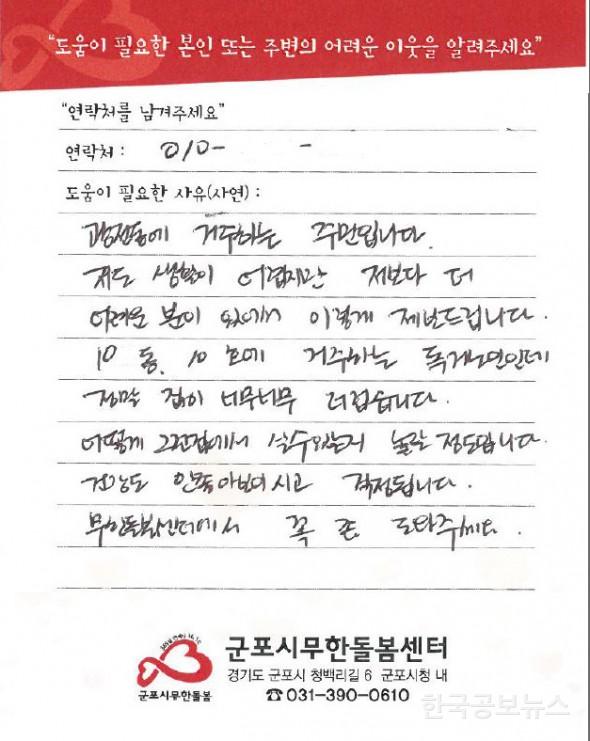 "도움이 필요한 본인 또는 주변의 어려운 이웃을 알려주세요"
"연락처를 남겨주세요"
연락처 : 010- -
도움이 필요한 사유(사연) :
광정동에 거주하는 주민입니다.
저도 생활이 어렵지만 저보다 더
어려운 분이 있어서 이렇게 제보드립니다.
10 동. 10 호에 거주하는 독거노인인데
정말 집이 너무너무 더럽습니다.
어떻게 그런집에서 살수있는지 놀랄 정도입니다.
건강도 안좋아보이시고 걱정됩니다.
무한돌봄센터에서 꼭 좀 도와주세요.
군포시무한돌봄센터
경기도 군포시 청백리길 6 군포시청 내
군포시무한돌봄
☎031-390-0610
한국공보뉴스